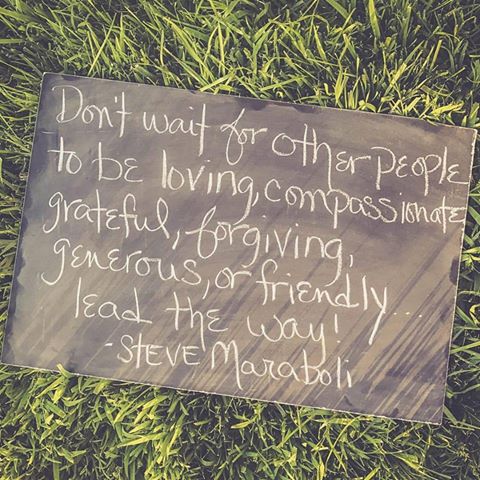 Don't wait for other people
to be loving, compassionate
grateful, forgiving,
generous, or friendly...
lead the way!
-STEVE Maraboli